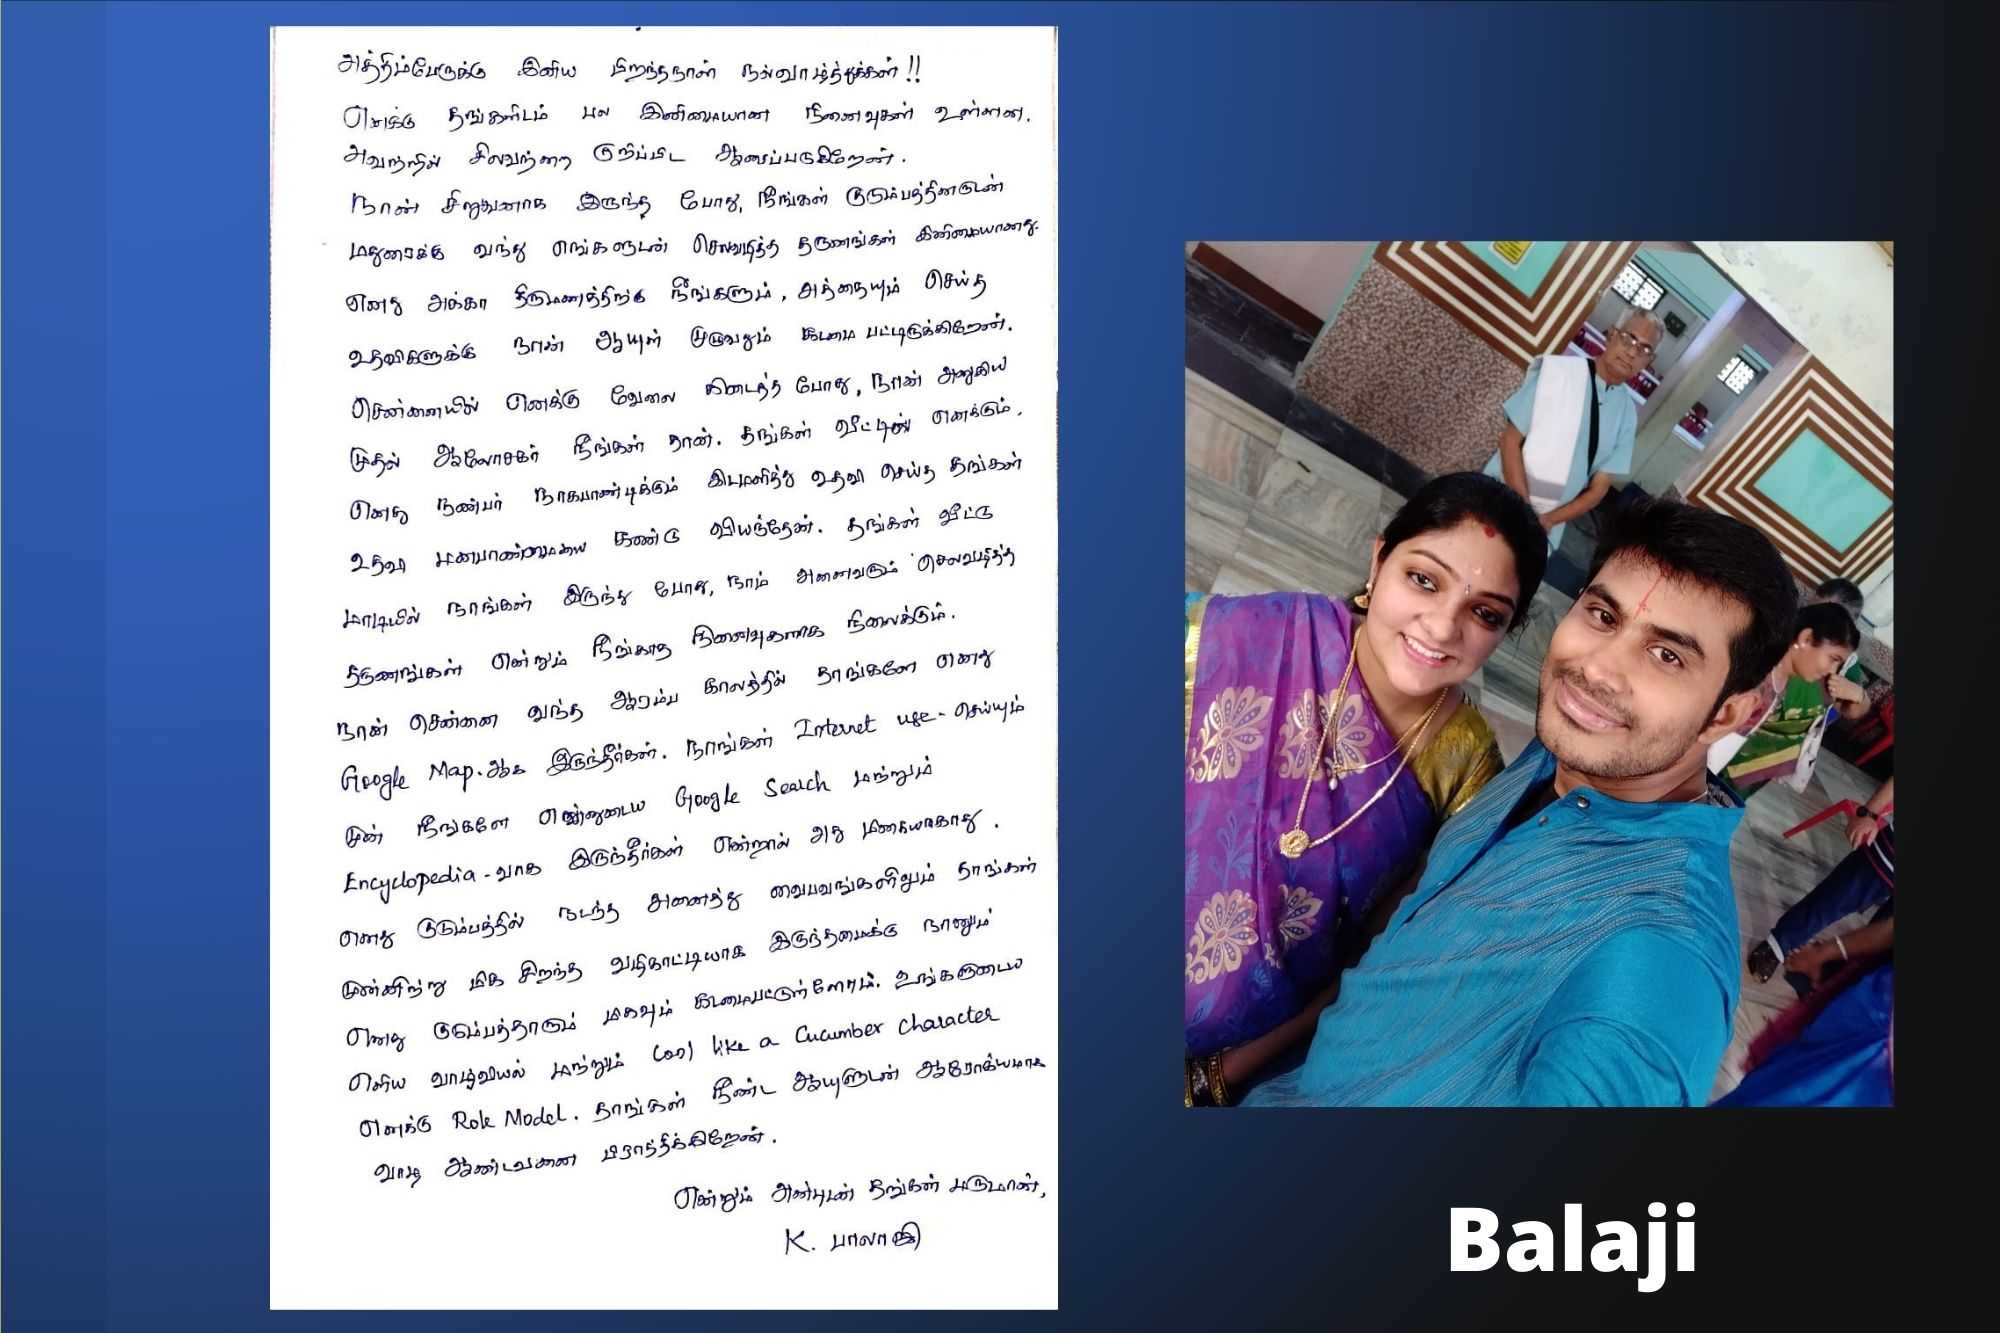 அத்திம்பேருக்கு இனிய பிறந்தநாள் நல்வாழ்த்துக்கள்!!
எனக்கு தங்களிடம் பல இனிமையான நினைவுகள் உள்ளன.
அவற்றில் சிலவற்றை குறிப்பிட ஆசைப்படுகிறேன்.
நான் சிறுவனாக இருந்த போது, நீங்கள் குடும்பத்தினருடன்
மதுரைக்கு வந்து எங்களுடன் செலவழித்த தருணங்கள் இனிமையானது.
எனது அக்கா திருமணத்திற்கு நீங்களும், அத்தையும் செய்த
உதவிகளுக்கு நான் ஆயுள் முழுவதும் கடமை பட்டிருக்கிறேன்.
சென்னையில் எனக்கு வேலை கிடைத்த போது, நான் அணுகிய
முதல் ஆலோசகர் நீங்கள் தான். தங்கள் வீட்டில் எனக்கும்,
எனது நண்பர் நாகபாண்டிக்கும் இடமளித்து உதவி செய்த தங்கள்
உதவி மனபாண்மையை கண்டு வியந்தேன். தங்கள் வீட்டு
மாடியில் நாங்கள் இருந்து போது, நாம் அனைவரும் செலவழித்த
தருணங்கள் என்றும் நீங்காத நினைவுகளாக நிலைக்கும்.
நான் சென்னை வந்த ஆரம்ப காலத்தில் தாங்களே எனது
Google Map-ஆக இருந்தீர்கள். நாங்கள் Internet use-செய்யும்
முன் நீங்களே என்னுடைய Google Search மற்றும்
Encyclopedia-வாக இருந்தீர்கள் என்றால் அது மிகையாகாது.
எனது குடும்பத்தில் நடந்த அனைத்து வைபவங்களிலும் தாங்கள்
முன்னின்று மிக சிறந்த வழிகாட்டியாக இருந்தமைக்கு நானும்
எனது குடும்பத்தாரும் மிகவும் கடமைபட்டுள்ளோம். உங்களுடைய
எளிய வாழ்வியல் மற்றும் Cool like a Cucumber character
எனக்கு Role Model. தாங்கள் நீண்ட ஆயுளுடன் ஆரோக்யமாக
வாழ ஆண்டவனை பிரார்த்திக்கிறேன்.
என்றும் அன்புடன் தங்கள் மருமான்,
K. பாலாஜி
Balaji